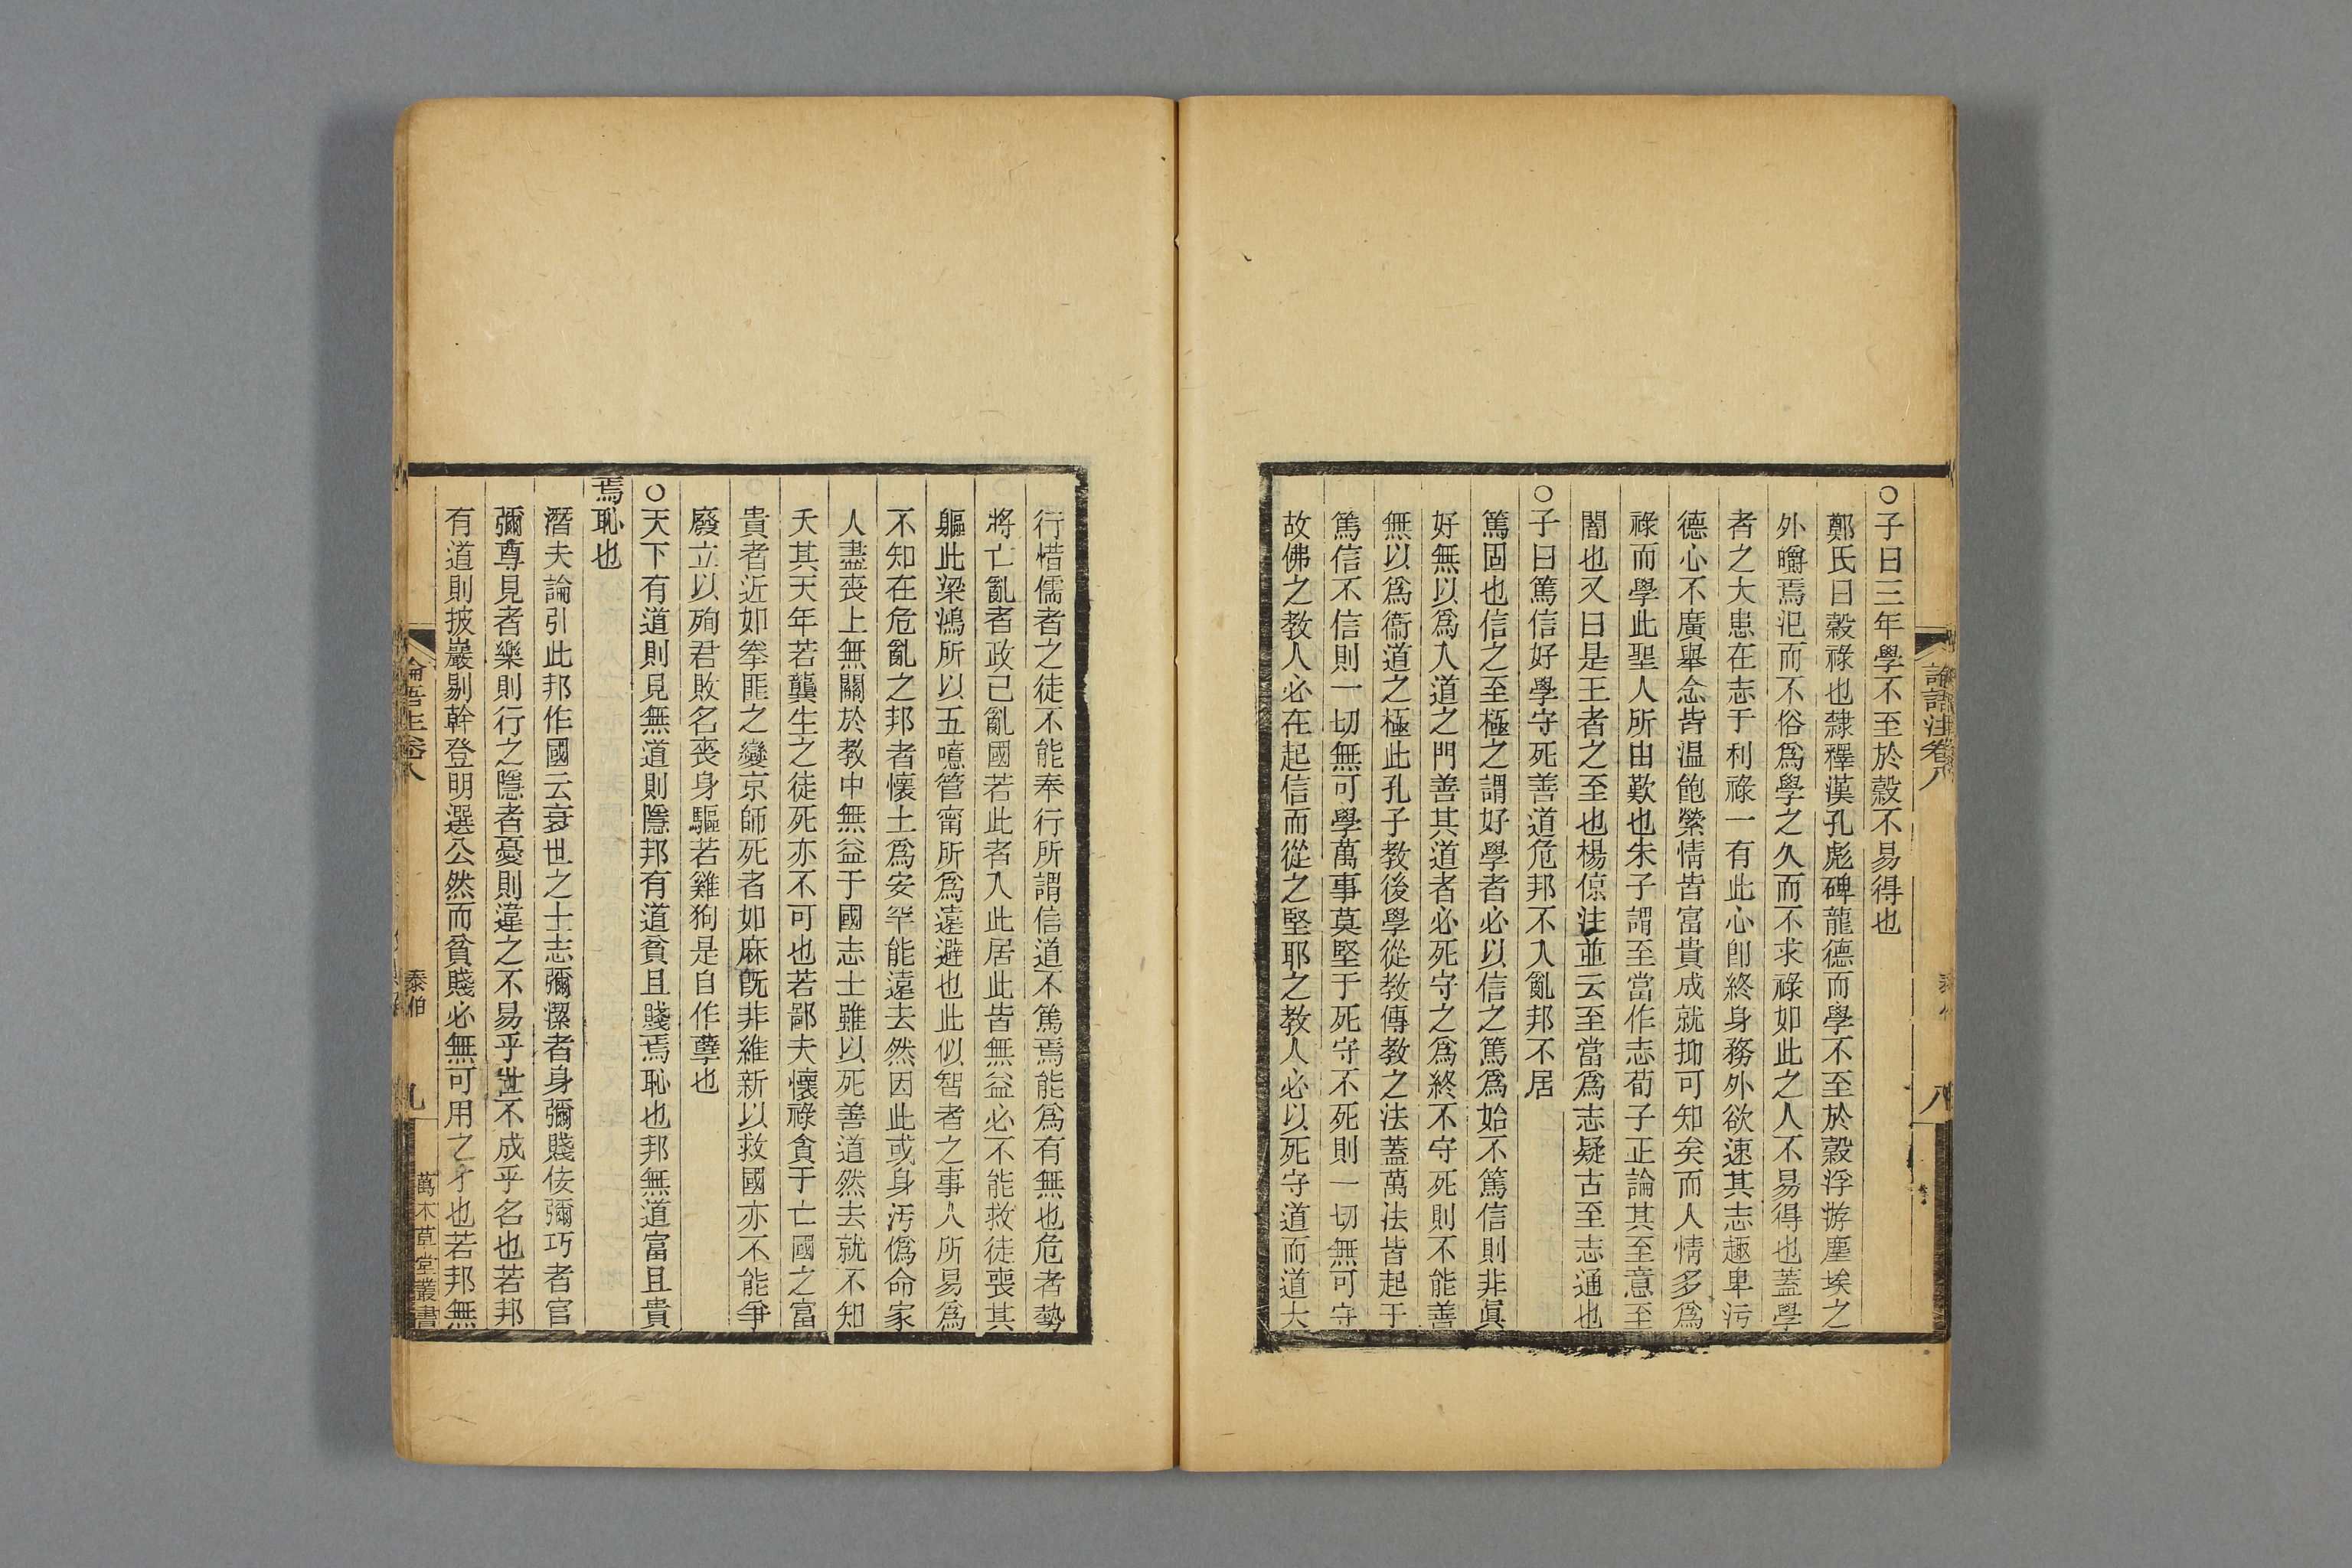 論語注卷八
八
○子曰三年學不至於穀不易得也
鄭氏曰穀祿也隸釋漢孔彪碑龍德而學不至於穀浮游塵埃之
外皭焉汜而不俗爲學之久而不求祿如此之人不易得也蓋學
者之大患在志于利祿一有此心卽終身務外欲速其志趣卑污
德心不廣舉念皆温飽縈情皆富貴成就抑可知矣而人情多爲
祿而學此聖人所由歎也朱子謂至當作志荀子正論其至意至
闇也又曰是王者之至也楊倞注並云至當爲志疑古至志通也
○子曰篤信好學守死善道危邦不入亂邦不居
篤固也信之至極之謂好學者必以信之篤爲始不篤信則非眞
好無以爲入道之門善其道者必死守之爲終不守死則不能善
無以爲衞道之極此孔子教後學從教傳教之法蓋萬法皆起于
篤信不信則一切無可學萬事莫堅于死守不死則一切無可守
故佛之教人必在起信而從之堅耶之教人必以死守道而道大
行惜儒者之徒不能奉行所謂信道不篤焉能爲有無也危者勢
將亡亂者政已亂國若此者入此居此皆無益必不能救徒喪其
軀此梁鴻所以五噫管甯所爲遠避也此似智者之事人所易爲
不知在危亂之邦者懷土爲安罕能遠去然因此或身汚僞命家
人盡喪上無關於教中無益于國志士雖以死善道然去就不知
夭其天年若龔生之徒死亦不可也若鄙夫懷祿貪于亡國之富
貴者近如拳匪之變京師死者如麻旣非維新以救國亦不能爭
廢立以殉君敗名喪身驅若雞狗是自作孽也
○天下有道則見無道則隱邦有道貧且賤焉恥也邦無道富且貴
焉恥也
潛夫論引此邦作國云衰世之士志彌潔者身彌賤佞彌巧者官
彌尊見者樂則行之隱者憂則違之不易乎世不成乎名也若邦
有道則披巖剔幹登明選公然而貧賤必無可用之才也若邦無
論語注卷八
泰伯
九
萬木草堂叢書